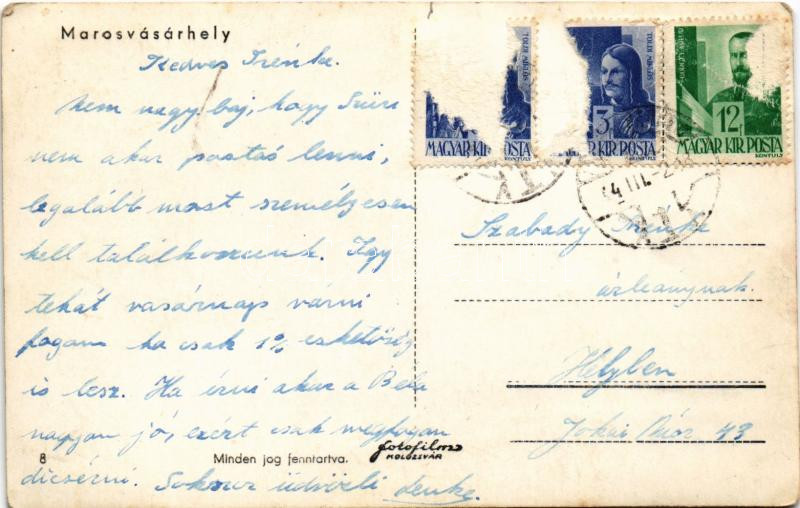 Marosvásárhely
Kedves Irénke.
Nem nagy baj, hogy Szüri
nem akar postás lenni,
legalább most személyesen
kell találkoznunk. Így
tehát vasárnap várni
fogom ha csak 1% eshetőség
is lesz. Ha írni akar a Bela
nagyon jó, ezért csak megfogom
dicsérni. Sokszor üdvözli Lenke.
8
Minden jog fenntartva.
fotofilm
KOLOZSVÁR
MAGYAR KIR. POSTA
TOLDI MIKLÓS
3
MAGYAR KIR. POSTA
KONTULY
12
MAGYAR KIR. POSTA
KONTULY
44 III. 2
Szabady Irénke
úrleánynak.
Helyben
Jokai Mór 43